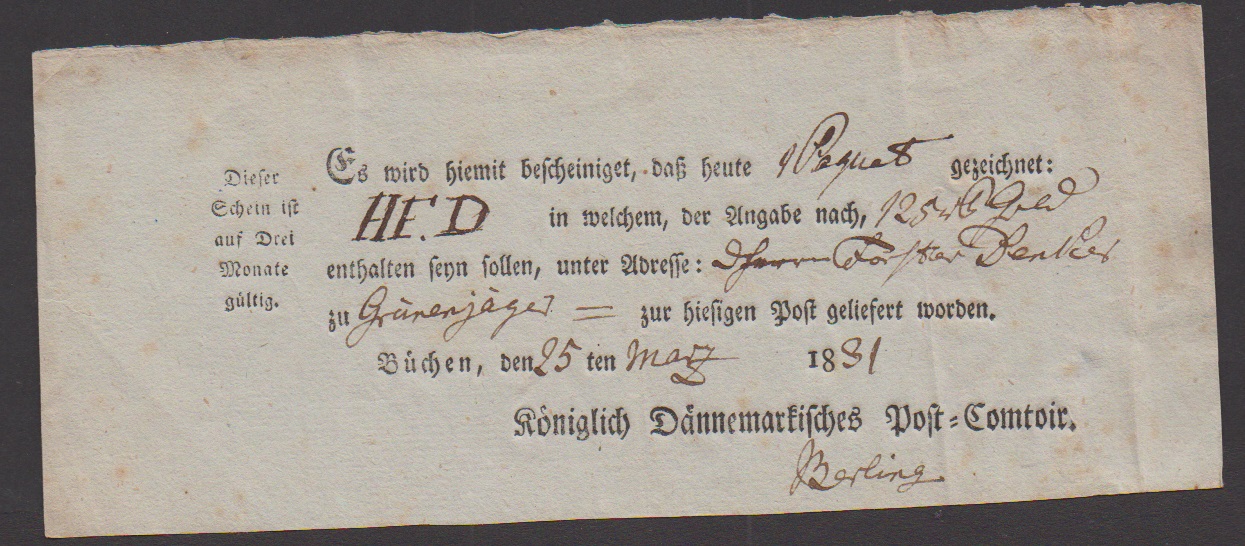 Dieser
Schein ist
auf Drei
Monate
gültig.
Es wird hiemit bescheiniget, daß heute 1 Paquet gezeichnet:
H F. D in welchem, der Angabe nach, 125 rß Gold
enthalten seyn sollen, unter Adresse: d Herrn Förster Denker
zu Grünenjäger = zur hiesigen Post geliefert worden.
Büchen, den 25 ten Marz 1831
Königlich Dännemarkisches Post-Comtoir.
Berling